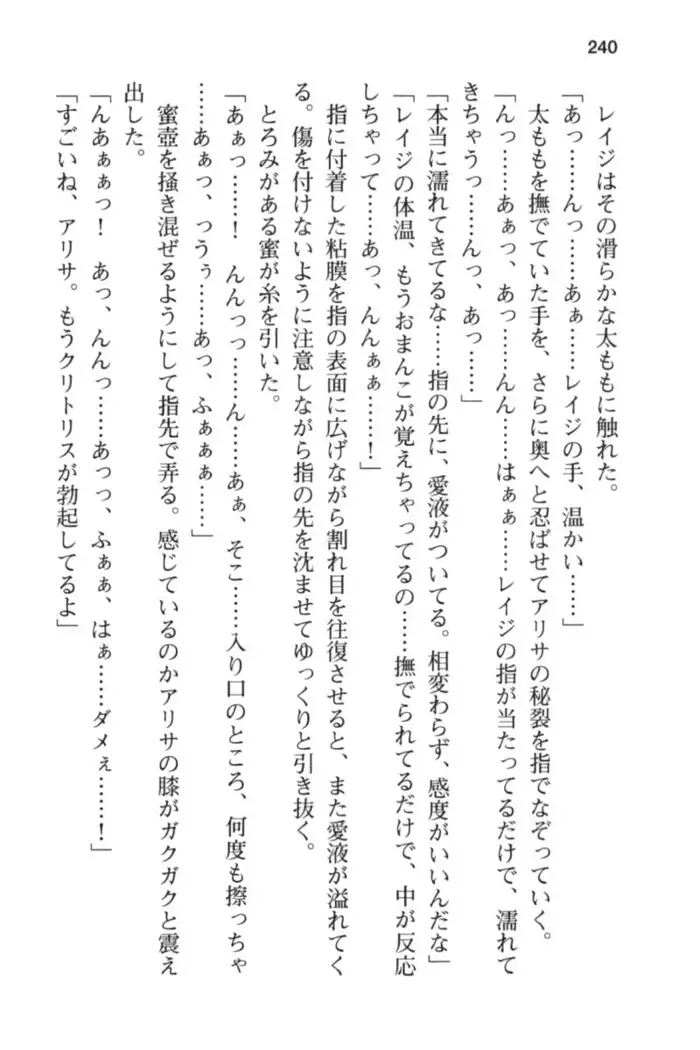 240
レイジはその滑らかな太ももに触れた。
「あっ……んっ……あぁ……レイジの手、温かい……」
太ももを撫でていた手を、さらに奥へと忍ばせてアリサの秘裂を指でなぞっていく。
「んっ……あぁっ、あっ……んん……はぁぁ……レイジの指が当たってるだけで、濡れて
きちゃうっ……んっ、あっ……」
「本当に濡れてきてるな……指の先に、愛液がついてる。相変わらず、感度がいいんだな」
「レイジの体温、もうおまんこが覚えちゃってるの……撫でられてるだけで、中が反応
しちゃって……あっ、んんぁぁ……！」
指に付着した粘膜を指の表面に広げながら割れ目を往復させると、また愛液が溢れてく
る。傷を付けないように注意しながら指の先を沈ませてゆっくりと引き抜く。
とろみがある蜜が糸を引いた。
「あぁっ……！　んんっっ……ん……あぁ、そこ……入り口のところ、何度も擦っちゃ
……あぁっ、つうぅ……あっ、ふぁぁぁ……」
蜜壺を掻き混ぜるようにして指先で弄る。感じているのかアリサの膝がガクガクと震え
出した。
「んあぁぁっ！　あっ、んんっ……あっっ、ふぁぁ、はぁ……ダメぇ……！」
「すごいね、アリサ。もうクリトリスが勃起してるよ」